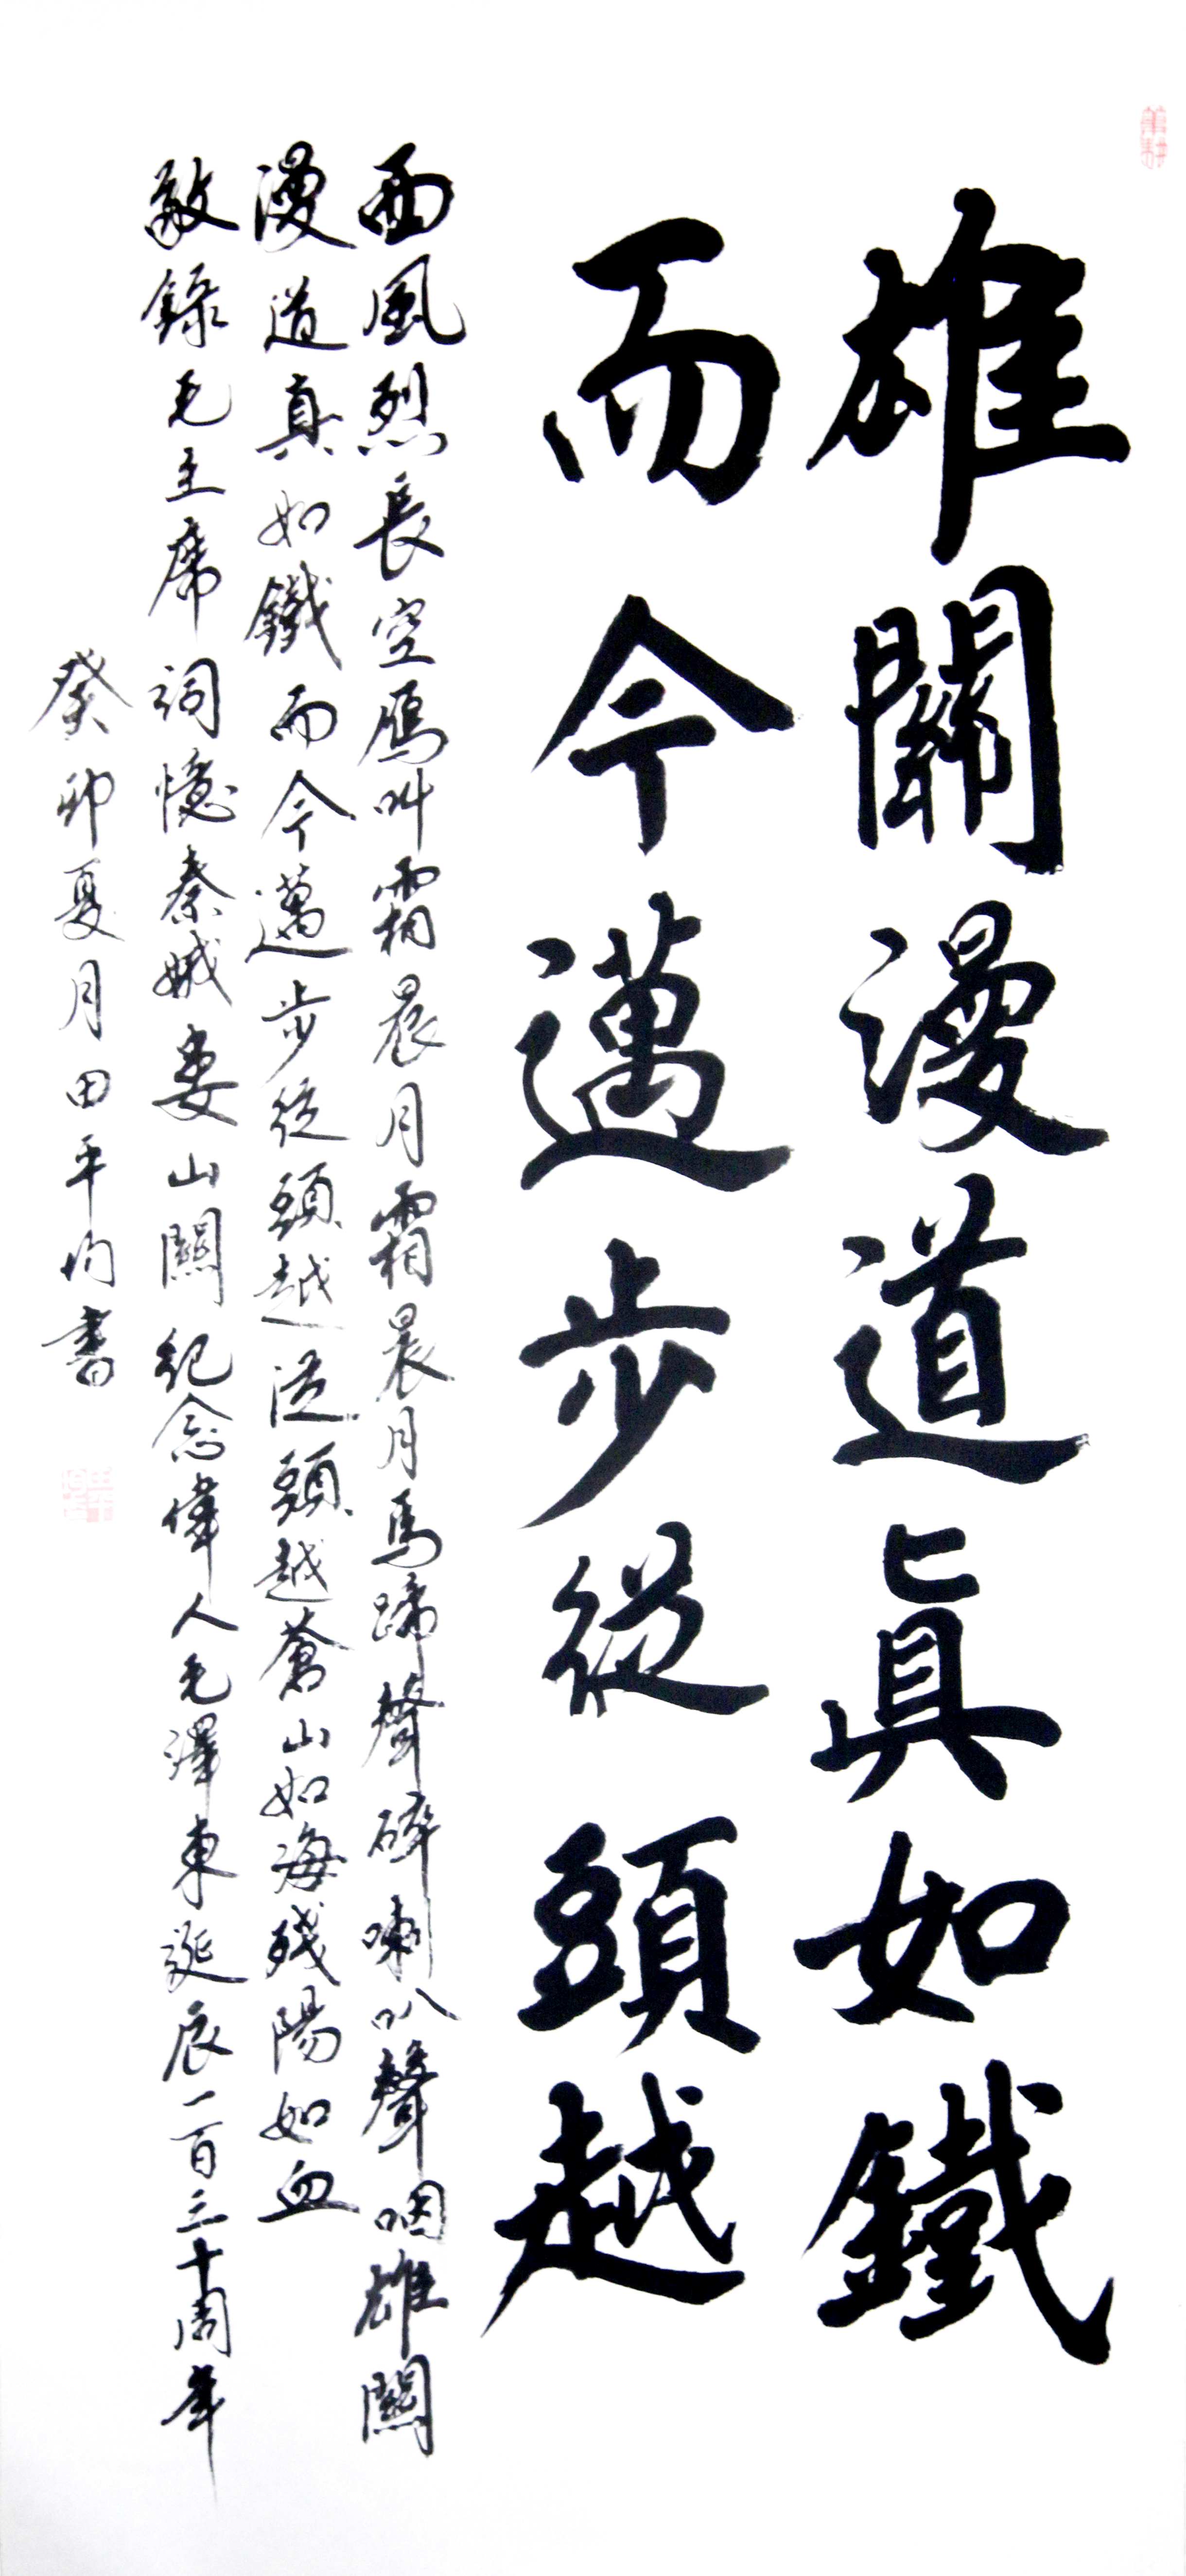 雄關漫道真如鐵
而今邁步從頭越
西風烈長空雁叫霜晨月霜晨月馬蹄聲碎喇叭聲咽雄關
漫道真如鐵而今邁步從頭越從頭越蒼山如海殘陽如血
敬錄毛主席詞憶秦娥婁山關紀念偉人毛澤東誕辰一百三十周年
癸卯夏月田平均書